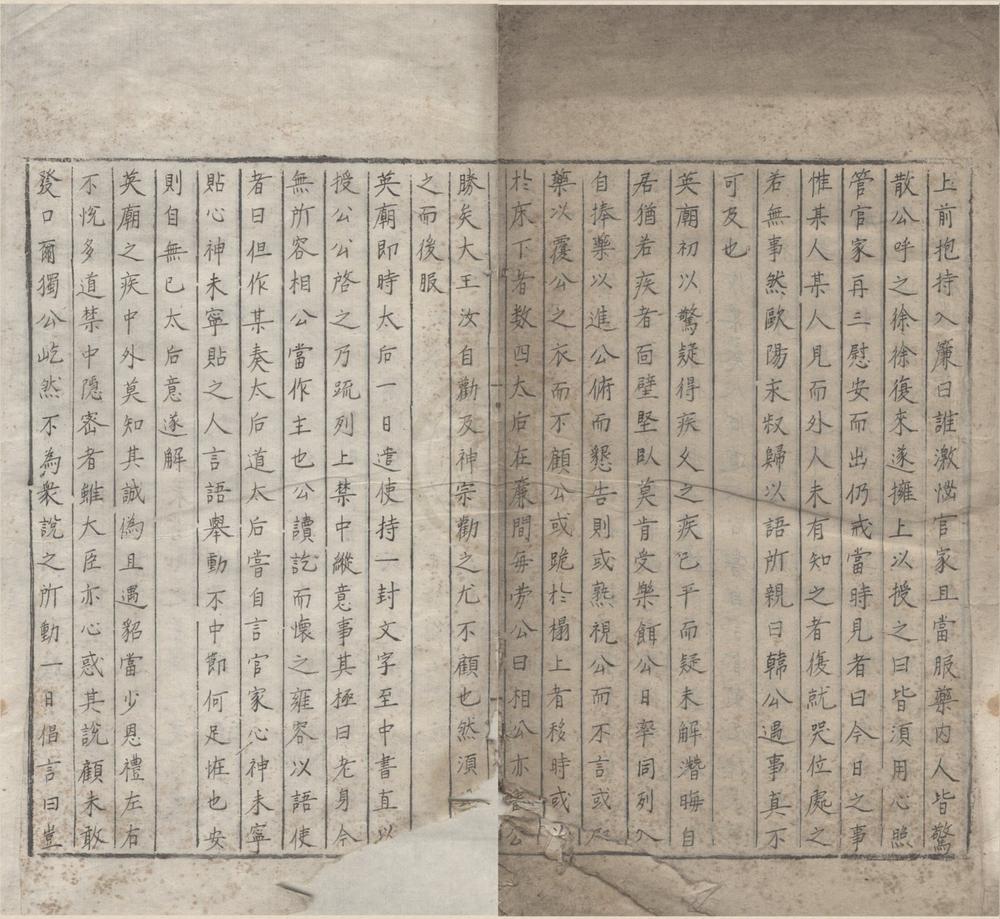 上前抱持入簾曰誰激惱官家且當服藥内人皆驚
散公呼之徐徐復來遂擁上以授之曰皆須用心照
管官家再三慰安而出仍戒當時見者曰今日之事
惟某人某人見而外人未有知之者復就哭位處之
若無事然歐陽永叔歸以語所親曰韓公遇事真不
可及也
英廟初以驚疑得疾久之疾已平而疑未解潛晦自
居猶若疾者面壁堅臥莫肯受藥餌公日率同列入
自捧藥以進公俯而懇告則或熟視公而不言或
藥以覆公之衣而不顧公或跪於榻上者移時或
於床下者数四太后在廉間每勞公曰相公亦公
勝矣大王汝自勸及神宗勸之尤不顧也然須
之而後服
英廟即時太后一日遣使持一封文字至中書直以
授公公啓之乃疏列上禁中縱意事其極曰老身今
無所容相公當作主也公讀訖而懷之雍容以語使
者曰但作某奏太后道太后嘗自言官家心神未寧
貼心神未寧貼之人言語舉動不中節何足恠也安
則自無已太后意遂解
英廟之疾中外莫知其誠僞且遇貂當少恩禮左右
不悅多道禁中隱密者雖大臣亦心惑其說顧未敢
發口爾獨公屹然不為衆說之所動一日倡言曰豈